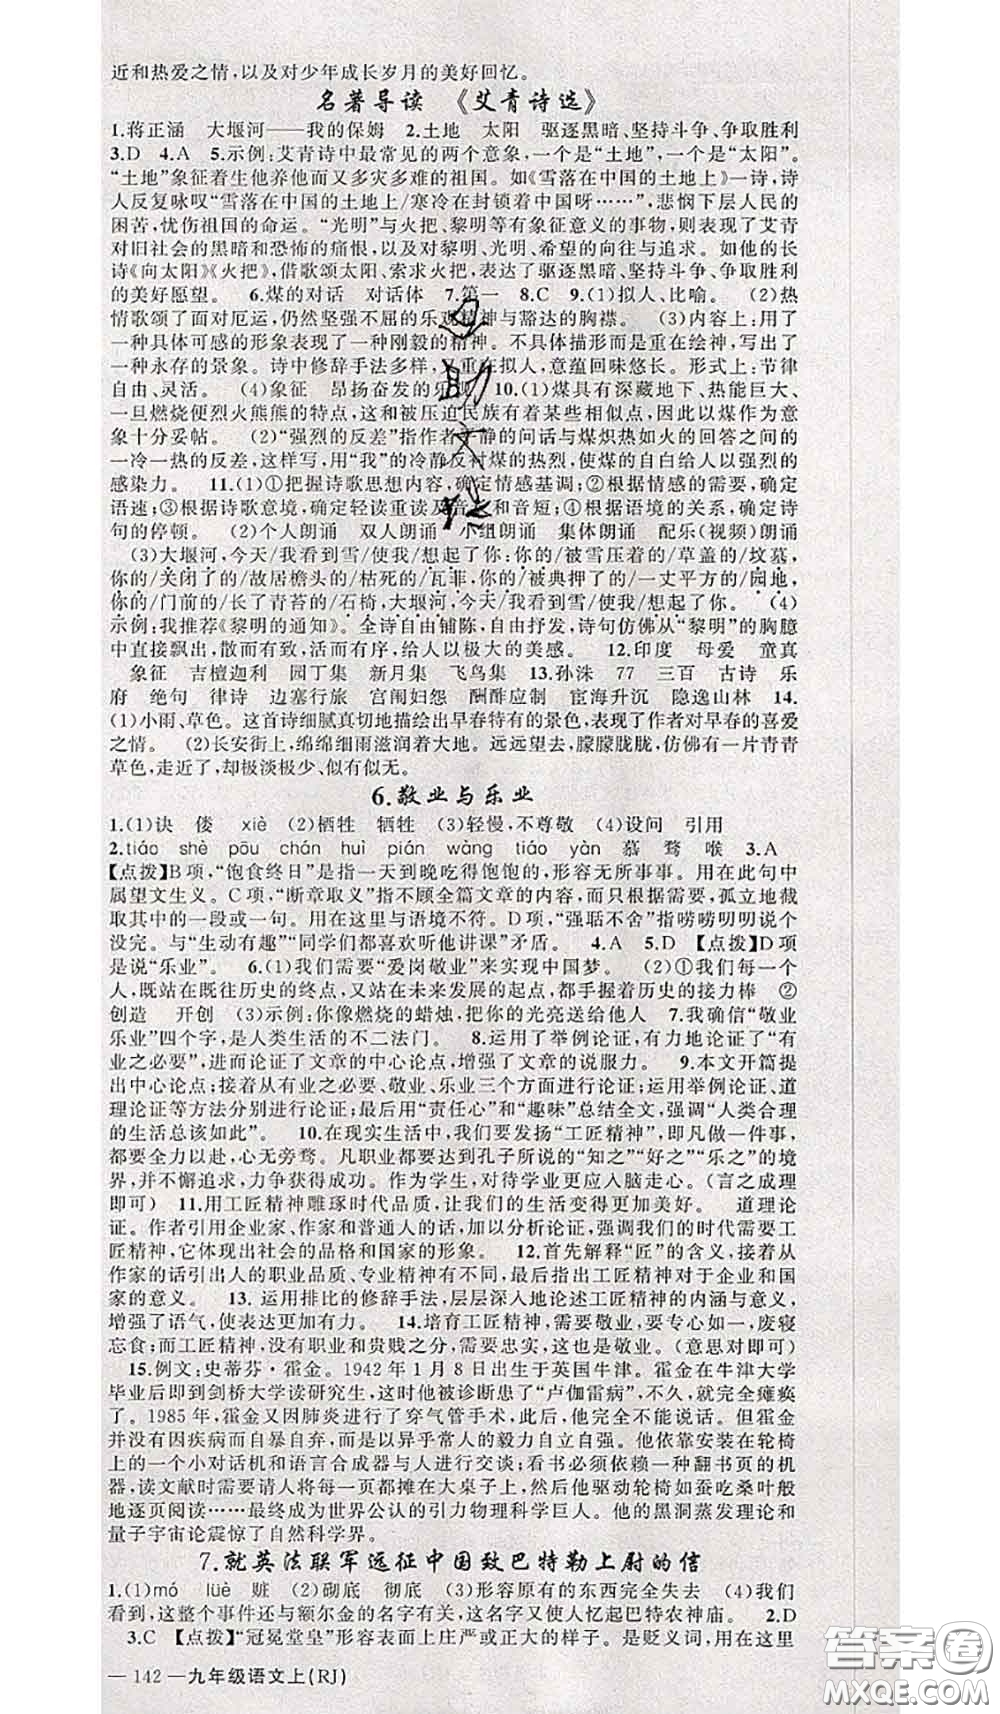 近和热爱之情,以及对少年成长岁月的美好回忆。
名著导读 《艾青诗选》
1.蒋正涵 大堰河——我的保姆 2.土地 太阳 驱逐黑暗、坚持斗争、争取胜利
3.D 4.A 5.示例:艾青诗中最常见的两个意象,一个是“土地”,一个是“太阳”。
“土地”象征着生他养他而又多灾多难的祖国。如《雪落在中国的土地上》一诗,诗
人反复咏叹“雪落在中国的土地上/寒冷在封锁着中国呀……”,悲悯下层人民的
困苦,忧伤祖国的命运。“光明”与火把、黎明等有象征意义的事物,则表现了艾青
对旧社会的黑暗和恐怖的痛恨,以及对黎明、光明、希望的向往与追求。如他的长
诗《向太阳》《火把》,借歌颂太阳、索求火把,表达了驱逐黑暗、坚持斗争、争取胜利
的美好愿望。 6.煤的对话 对话体 7.第一 8.C 9.(1)拟人、比喻。 (2)热
情歌颂了面对厄运,仍然坚强不屈的乐观精神与豁达的胸襟。 (3)内容上:用了
一种具体可感的形象表现了一种刚毅的精神。不具体描形而是重在绘神,写出了
一种永存的景象。诗中修辞手法多样,又重在拟人,意蕴回味悠长。形式上:节律
自由、灵活。 (4)象征 昂扬奋发的乐观 10.(1)煤具有深藏地下、热能巨大、
一旦燃烧便烈火熊熊的特点,这和被压迫民族有着某些相似点,因此以煤作为意
象十分妥帖。 (2)“强烈的反差”指作者平静的问话与煤炽热如火的回答之间的
一冷一热的反差,这样写,用“我”的冷静反衬煤的热烈,使煤的自白给人以强烈的
感染力。 11.(1)①把握诗歌思想内容,确定情感基调;②根据情感的需要,确定
语速;③根据诗歌意境,确定轻读重读及音长和音短;④根据语境的关系,确定诗
句的停顿。 (2)个人朗诵 双人朗诵 小组朗诵 集体朗诵 配乐(视频)朗诵
(3)大堰河,今天/我看到雪/使我/想起了你:你的/被雪压着的/草盖的/坟墓,
你的/关闭了的/故居檐头的/枯死的/瓦菲,你的/被典押了的/一丈平方的/园地,
你的/门前的/长了青苔的/石椅,大堰河,今天/我看到雪/使我/想起了你。 (4)
示例:我推荐《黎明的通知》。全诗自由铺陈,自由抒发,诗句仿佛从“黎明”的胸臆
中直接飘出,散而有致,活而有序,给人以极大的美感。 12.印度 母爱 童真
象征 吉檀迦利 园丁集 新月集 飞鸟集 13.孙洙 77 三百 古诗 乐
府 绝句 律诗 边塞行旅 宫闱妇怨 酬酢应制 宦海升沉 隐逸山林 14.
(1)小雨、草色。这首诗细腻真切地描绘出早春特有的景色,表现了作者对早春的喜爱
之情。 (2)长安街上,绵绵细雨滋润着大地。远远望去,朦朦胧胧,仿佛有一片青青
草色,走近了,却极淡极少、似有似无。
6.敬业与乐业
1.(1)诀 偻 xiè (2)栖牲 牺牲 (3)轻慢,不尊敬 (4)设问 引用
2.tiáo shè pōu chán huì pián wàng tiáo yàn 慕 骛 喉 3.A
【点拨】B项,“饱食终日”是指一天到晚吃得饱饱的,形容无所事事。用在此句中
属望文生义。C项,“断章取义”指不顾全篇文章的内容,而只根据需要,孤立地截
取其中的一段或一句。用在这里与语境不符。D项,“强聒不舍”指唠唠叨叨说个
没完。与“生动有趣”“同学们都喜欢听他讲课”矛盾。 4.A 5.D 【点拨】D项
是说“乐业”。 6.(1)我们需要“爱岗敬业”来实现中国梦。 (2)①我们每一个
人,既站在既往历史的终点,又站在未来发展的起点,都手握着历史的接力棒 ②
创造 开创 (3)示例:你像燃烧的蜡烛,把你的光亮送给他人 7.我确信“敬业
乐业”四个字,是人类生活的不二法门。 8.运用了举例论证,有力地论证了“有
业之必要”,进而论证了文章的中心论点,增强了文章的说服力。 9.本文开篇提
出中心论点;接着从有业之必要、敬业、乐业三个方面进行论证;运用举例论证、道
理论证等方法分别进行论证;最后用“责任心”和“趣味”总结全文,强调“人类合理
的生活总该如此”。 10.在现实生活中,我们要发扬“工匠精神”,即凡做一件事,
都要全力以赴,心无旁骛。凡职业都要达到孔子所说的“知之”“好之”“乐之”的境
界,并不懈追求,力争获得成功。作为学生,对待学业更应入脑走心。(言之成理
即可) 11.用工匠精神雕琢时代品质,让我们的生活变得更加美好。 道理论
证。作者引用企业家、作家和普通人的话,加以分析论证,强调我们的时代需要工
匠精神,它体现出社会的品格和国家的形象。 12.首先解释“匠”的含义,接着从
作家的话引出人的职业品质、专业精神有不同,最后指出工匠精神对于企业和国
家的意义。 13. 运用排比的修辞手法,层层深入地论述工匠精神的内涵与意义,
增强了语气,使表达更加有力。 14.培育工匠精神,需要敬业,要专心如一,废寝
忘食;而工匠精神,没有职业和贵贱之分,也是敬业。(意思对即可)
15.例文:史蒂芬·霍金。1942年1月8日出生于英国牛津。霍金在牛津大学
毕业后即到剑桥大学读研究生,这时他被诊断患了“卢伽雷病”,不久,就完全瘫痪
了。1985年,霍金又因肺炎进行了穿气管手术,此后,他完全不能说话。但霍金
并没有因疾病而自暴自弃,而是以异乎常人的毅力自立自强。他依靠安装在轮椅
上的一个小对话机和语言合成器与人进行交谈;看书必须依赖一种翻书页的机
器,读文献时需要请人将每一页都摊在大桌子上,然后他驱动轮椅如蚕吃桑叶般
地逐页阅读……最终成为世界公认的引力物理科学巨人。他的黑洞蒸发理论和
量子宇宙论震惊了自然科学界。
7.就英法联军远征中国致巴特勒上尉的信
1.(1)mó lüè 赃 (2)砌底 彻底 (3)形容原有的东西完全失去 (4)我们
看到,这整个事件还与额尔金的名字有关,这名字又使人忆起巴特农神庙。 2.D
3.C 【点拨】“冠冕堂皇”形容表面上庄严或正大的样子。是贬义词,用在这里
— 142 —九年级语文上(RJ)
答案圈
MXQE.COM